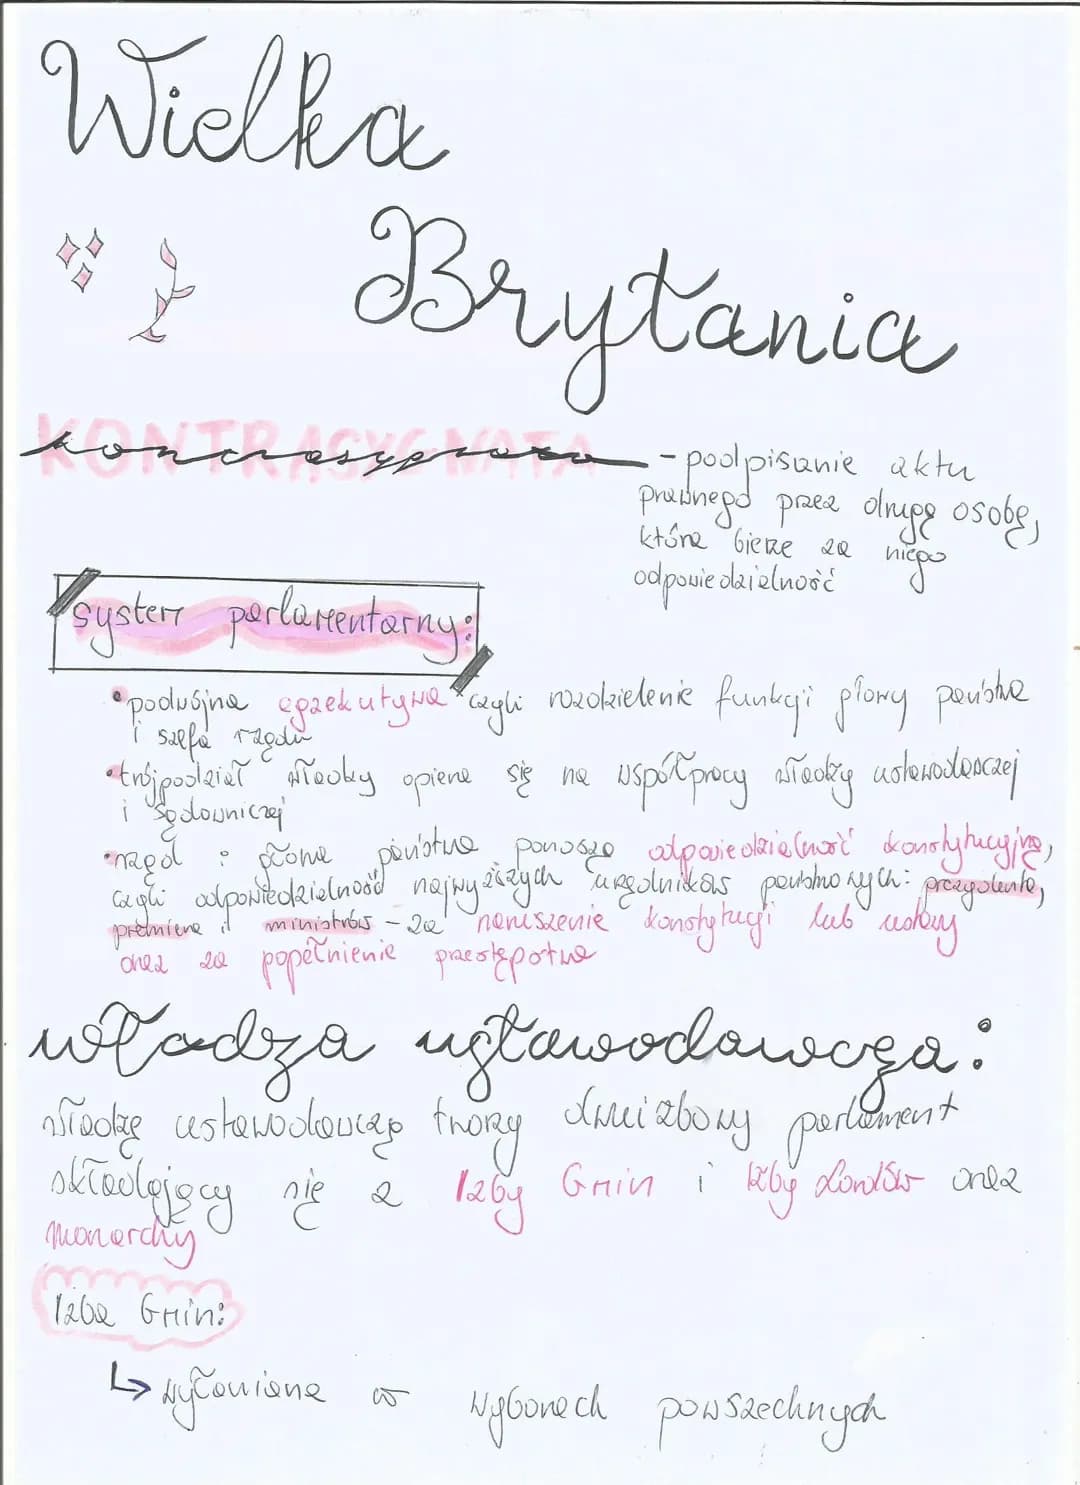 Wielka
Brytania
KONTRASYGNATA
kontrasygnata - podpisanie aktu
prawnego przez drugą osobę,
która bierze za niego
odpowiedzialność
system parlamentarny:
• podwójna egzekutywa czyli rozdzielenie funkcji głowy państwa
i szefa rządu
• trójpodział władzy opiera się na współpracy władzy ustawodawczej
i sądowniczej
• rząd i głowa państwa ponoszą odpowiedzialność konstytucyjną,
czyli odpowiedzialność najwyższych urzędników państwowych: prezydenta,
premiera i ministrów - za naruszenie konstytucji lub ustawy
oraz za popełnienie przestępstwa
władza ustawodawcza:
władzę ustawodawczą tworzy dwuizbowy parlament
składający się z Izby Gmin i Izby Lordów oraz
Monarchy
Izba Gmin:
↳ wyłoniana w wyborach powszechnych